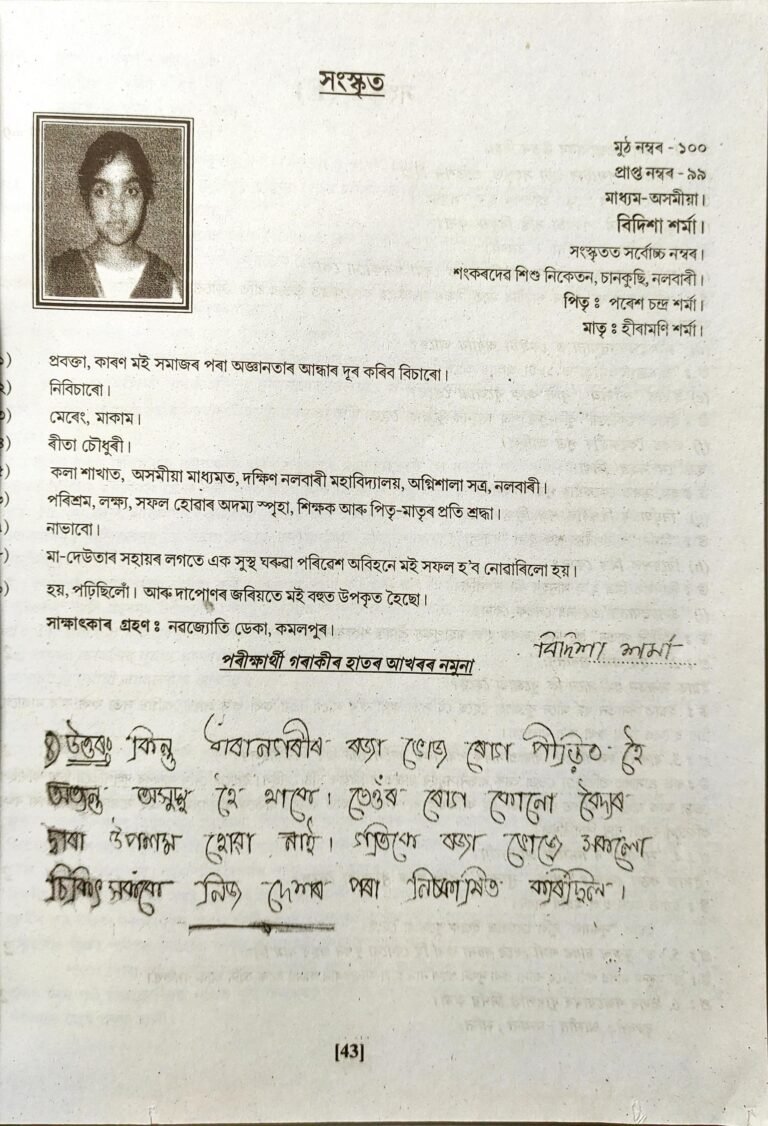 সংস্কৃত
মুঠ নম্বৰ - ১০০
প্রাপ্ত নম্বৰ - ৯৯
মাধ্যম- অসমীয়া।
বিদিশা শৰ্মা।
সংস্কৃতত সর্বোচ্চ নম্বৰ।
শংকৰদেৱ শিশু নিকেতন, চানকুছি, নলবাৰী।
পিতৃ ঃ পৰেশ চন্দ্ৰ শৰ্মা।
মাতৃ ঃ হীৰামণি শৰ্মা।
প্রবক্তা, কাৰণ মই সমাজৰ পৰা অজ্ঞানতাৰ আন্ধাৰ দূৰ কৰিব বিচাৰো।
নিবিচাৰো।
মেৰেং, মাকাম।
ৰীতা চৌধুৰী।
কলা শাখাত, অসমীয়া মাধ্যমত, দক্ষিণ নলবাৰী মহাবিদ্যালয়, অগ্নিশালা সত্ৰ, নলবাৰী।
পৰিশ্ৰম, লক্ষ্য, সফল হোৱাৰ অদম্য স্পৃহা, শিক্ষক আৰু পিতৃ-মাতৃৰ প্ৰতি শ্ৰদ্ধা।
নাভাবো।
মা-দেউতাৰ সহায়ৰ লগতে এক সুস্থ ঘৰুৱা পৰিৱেশ অবিহনে মই সফল হ'ব নোৱাৰিলো হয়।
হয়, পঢ়িছিলোঁ। আৰু দাপোণৰ জৰিয়তে মই বহুত উপকৃত হৈছো।
সাক্ষাৎকাৰ গ্ৰহণ ঃ নৱজ্যোতি ডেকা, কমলপুৰ।
বিদিশা শৰ্মা
পৰীক্ষাৰ্থী গৰাকীৰ হাতৰ আখৰৰ নমুনা
উত্তৰঃ কিন্তু ধাৰানগৰীৰ ৰজা ভোজ ৰোগ পীড়িত হৈ
অত্যন্ত অসুস্থ হৈ থাকে। তেওঁৰ ৰোগ কোনো বৈদ্যৰ
দ্বাৰা উপশম হোৱা নাই। গতিকে ৰজা ভোজে সকলো
চিকিৎসককে নিজ দেশৰ পৰা নিষ্কাষিত কৰিছিল।
[43]